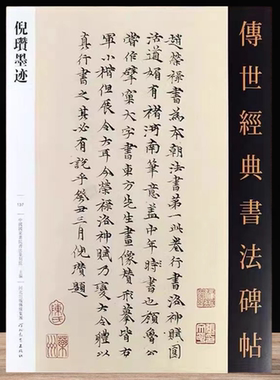 傳世經典書法碑帖
趙榮祿書為本朝法書第一此卷行書洛神賦圓
活遒媚有褚河南筆意蓋中年時書也顏魯公
嘗作擘窠大字書東方先生畫像贊形摹皆右
軍小楷但展令大耳今榮祿洛神賦乃變大令體以
真行書之其必有說乎癸丑三月倪瓚題
倪瓚墨迹